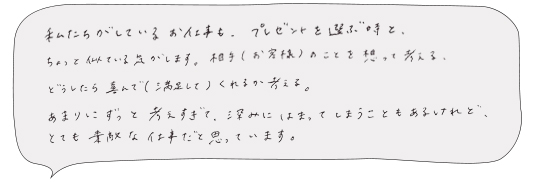 私たちがしているお仕事も、プレゼントを選ぶ時と、
ちょっと似ている気がします。相手(お客様)のことを想って考える、
どうしたら喜んで(満足して)くれるか考える。
あまりにずっと考えすぎて、深みにはまってしまうこともあるけれど、
とても素敵な仕事だと思っています。